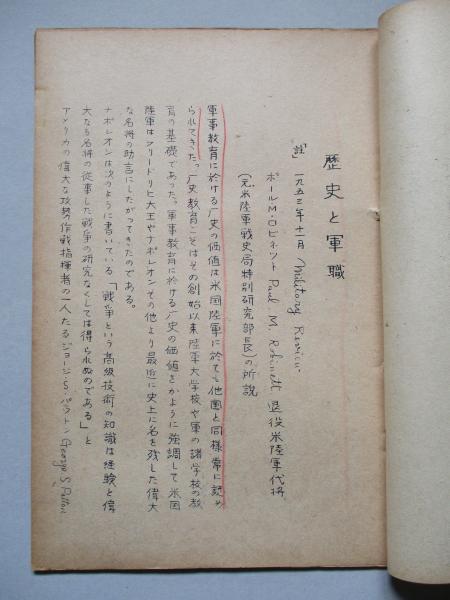 歴史と軍職
註」 一九五三年十一月 Military Review.
ポールM.ロビネット Paul M. Robinett 退役米陸軍代将
(元米陸軍戦史局特別研究部長)の所説
軍事教育に於ける歴史の価値は米国陸軍に於ても他国と同様常に認め
られてきた。歴史教育こそはその創始以来陸軍大学校や軍の諸学校の教
育の基礎であった。軍事教育に於ける歴史の価値をかように強調して米国
陸軍はフリードリヒ大王やナポレオンその他より最近に史上に名を残した偉大
な名将の助言にしたがってきたのである。
ナポレオンは次のように書いている「戦争という高級技術の知識は経験と偉
大なる名将の従事した戦争の研究なくしては得られぬのである」と
アメリカの偉大な攻勢作戦指揮者の一人たるジョージS.パットン George S Patton